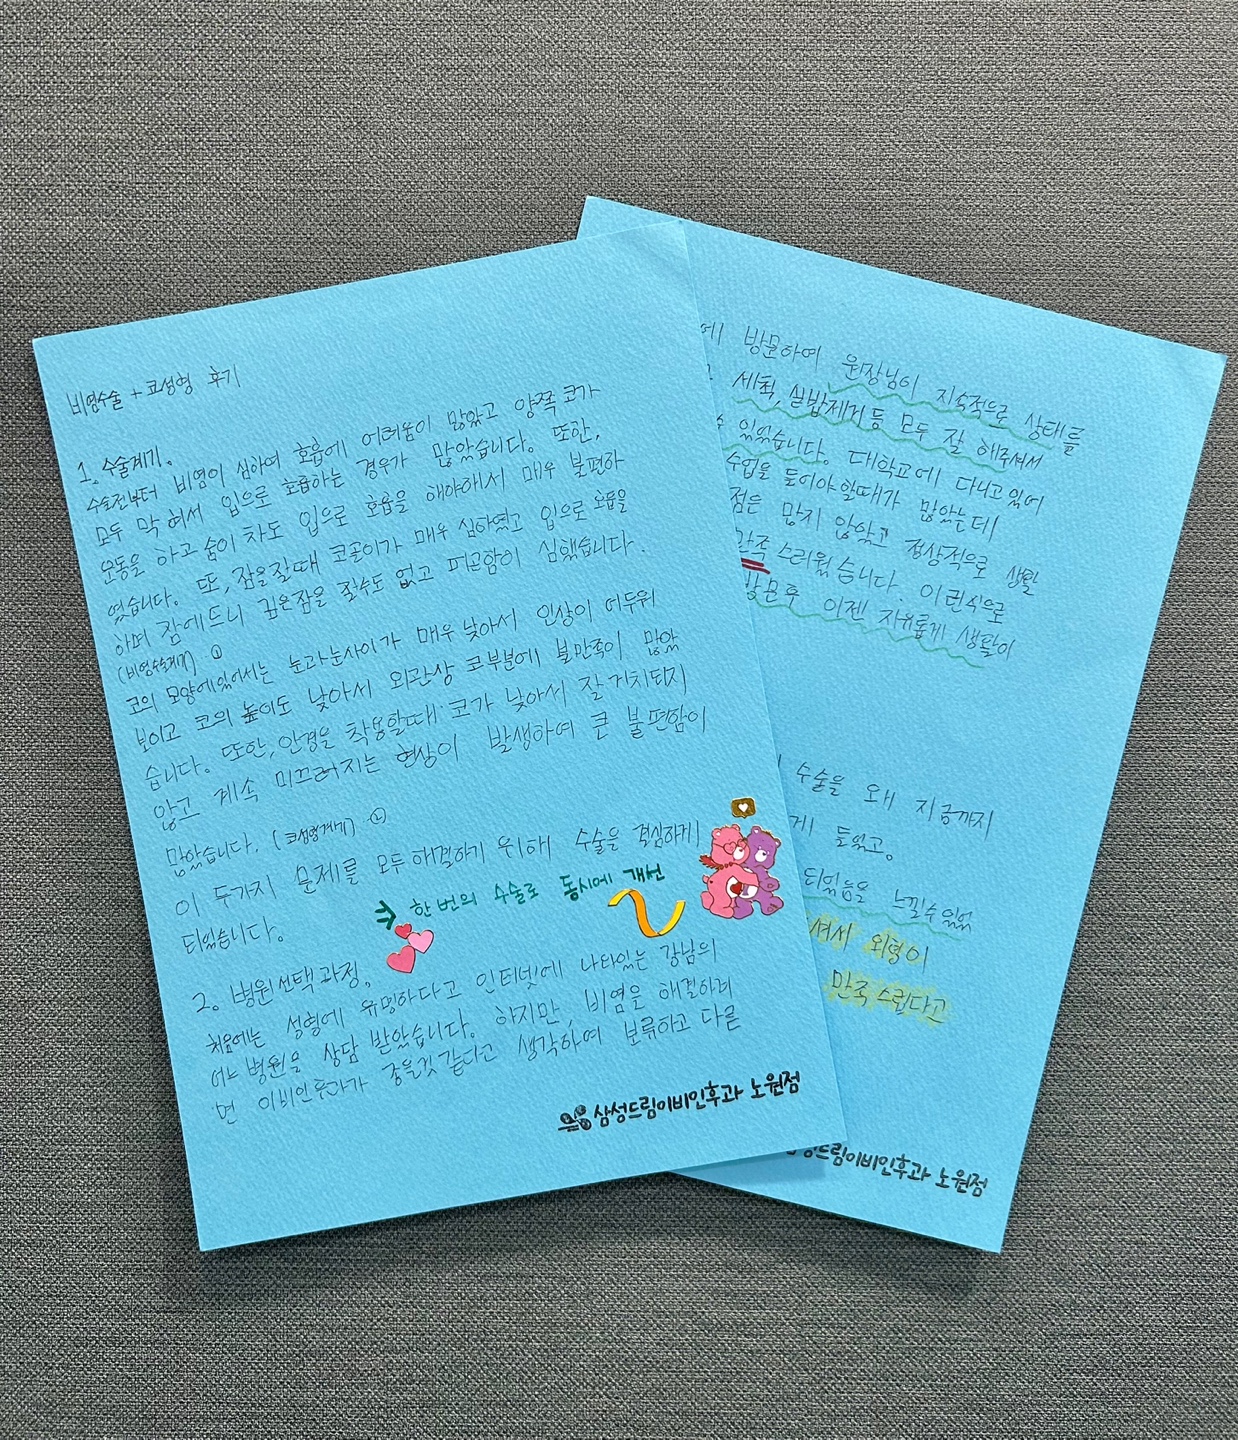 비염수술 + 코성형 후기
1. 수술계기.
수술전부터 비염이 심하여 호흡에 어려움이 많았고 양쪽 코가
모두 막혀서 입으로 호흡하는 경우가 많았습니다. 또한,
운동을 하고 숨이 차도 입으로 호흡을 해야해서 매우 불편하
였습니다. 또, 잠을잘때 코골이가 매우 심하였고 입으로 호흡을
하며 잠에드니 깊은잠을 잘수도 없고 피곤함이 심했습니다.
(비염수술계기) ①
코의 모양에있어서는 눈과눈사이가 매우 낮아서 인상이 어두워
보이고 코의 높이도 낮아서 외관상 코부분에 불만족이 많았
습니다. 또한, 안경을 착용할때 코가 낮아서 잘 거치되지
않고 계속 미끄러지는 현상이 발생하여 큰 불편함이
많았습니다. (코성형계기) ②
이 두가지 문제를 모두 해결하기 위해 수술을 결심하게
되었습니다.
한번의 수술로 동시에 개선
2. 병원선택과정.
처음에는 성형에 유명하다고 인터넷에 나타있는 강남의
어느 병원을 상담 받았습니다. 하지만, 비염을 해결하려
면 이비인후과가 좋을것 같다고 생각하여 보류하고 다른
삼성드림이비인후과 노원점
에 방문하여 원장님이 지속적으로 상태를
세척, 실밥제거 등 모두 잘 해주셔서
있었습니다. 대학교에 다니고있어
수업을 들어야 할때가 많았는데
점은 많지 않았고 정상적으로 생활
만족스러웠습니다. 이런식으로
방문후 이젠 자유롭게 생활이
수술을 왜 지금까지
게 들었고.
되었음을 느낄수있었
셔서 외형이
만족스럽다고
드림이비인후과 노원점